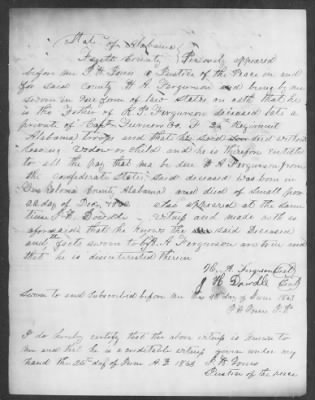 State of Alabama
Fayette County Personly appeared
before me J H Jones a Justice of the Peace in and
for said County H A Ferguson and being by me
sworn in due form of law states on oath that he
is the Father of Ferguson deceased late a
private of Capt Co 26th Regiment
Alabama troops and that the said died without
leaving Widow or child and he is therefore entitled
to all the pay that ma be due Ferguson from
the confederate States said deceased was born in
County Alabama and died of Small pox
day of Dec 1862 also appeared at the same
time J H Dowdle witness and made oath is
aforesaid that he knows the said Deceased
and the facts sworn to by H. A Ferguson are true and
that he is desinterested Therein
H. A Ferguson
J H Dowdle
Sworn to and Subscribed before me this day of June 1863
J H Jones J. P.
I do hereby certify that the above witness is known to
me and that he is a creditable witness given under my
hand the 26th day of June A D 1863
J H Jones
Justice of the peace